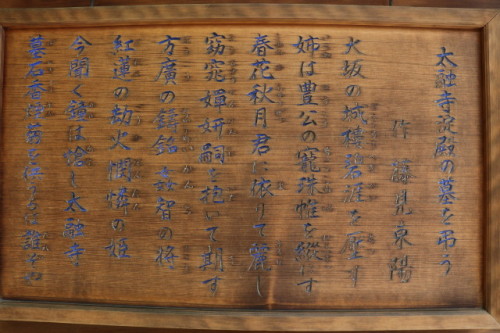 太融寺淀殿の墓を弔う
作 藤見東陽
大坂の城樓碧涯を圧す
姉は豊公の寵珠帷を縦にす
春花秋月君に依りて麗し
窈窕嬋妍嗣を抱いて期す
方廣の鐘銘姦智の将
紅蓮の劫火憫悼の姫
今聞く魂は眠る太融寺
墓石香焼 を供するは誰ぞや